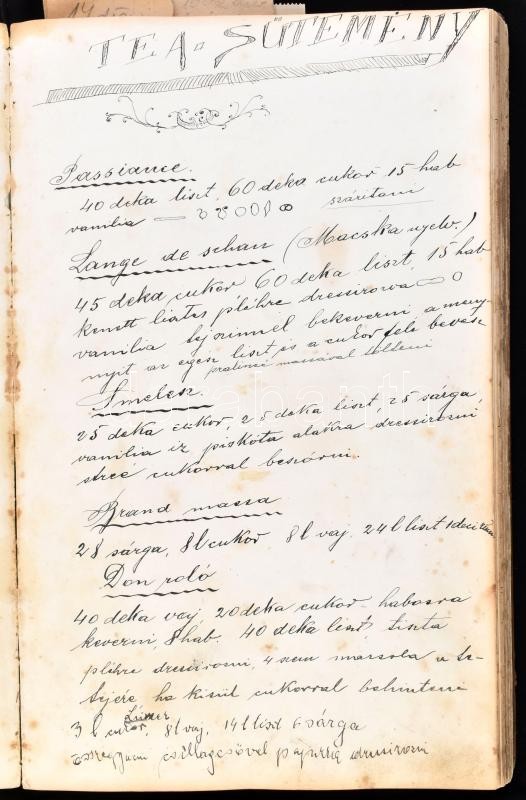 TEA-SÜTEMÉNY
Passiance.
40 deka liszt, 60 deka cukor 15 hab
vanilia szárítani
Lange de schan (Macska nyelv.)
45 deka cukor 60 deka liszt, 15 hab
kenett lisztes pléhre dressirowa
vanilia tejszinnel bekeverni a meny-
nyit az egész liszt és a cukor fele bevesz
praliné massával tölteni
Smelesz.
25 deka cukor, 25 deka liszt, 25 sárga,
vanilia iz piskóta alakra dressirozni
streé cukorral beszórni.
Brand massa
28 sárga, 8l cukor 8l vaj, 24l liszt 1 deci
Don roló
40 deka vaj 20 deka cukor habosra
keverni 8 hab. 40 deka liszt tiszta
pléhre dressirozni, 4 szem mazsola a te-
tejére ha kisül cukorral behinteni
3 l cukor, 8l vaj, 14l liszt 6 sárga
csillagcsővel papirra dressirozni